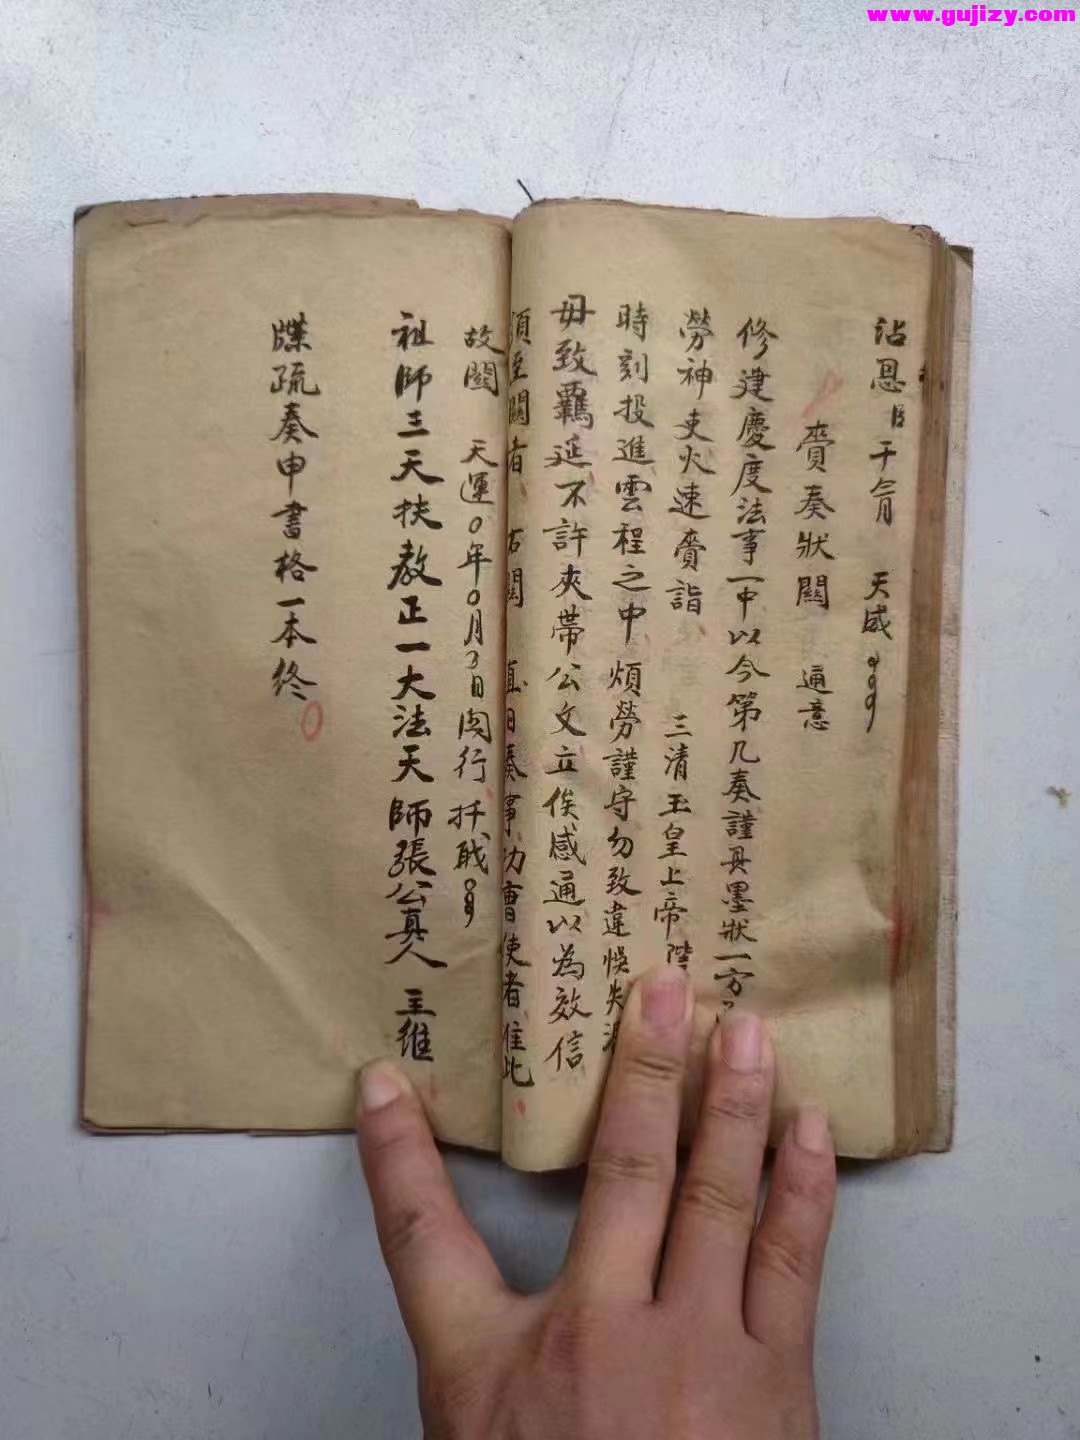 www.gujizy.com
沾恩 干 天威
賫奏狀關 通意
修建慶度法事一中以今第几奏謹具墨狀一方
勞神吏火速賫詣 三清玉皇上帝陛
時刻投進雲程之中煩勞謹守勿致違悮失
毋致羈延不許夾帶公文立俟感通以為效信
須至關者 右關 直日奏事功曹使者准此
故關 天運〇年〇月〇日関行 
祖師三天扶教正一大法天師張公真人 主維
牒疏奏申書格一本終